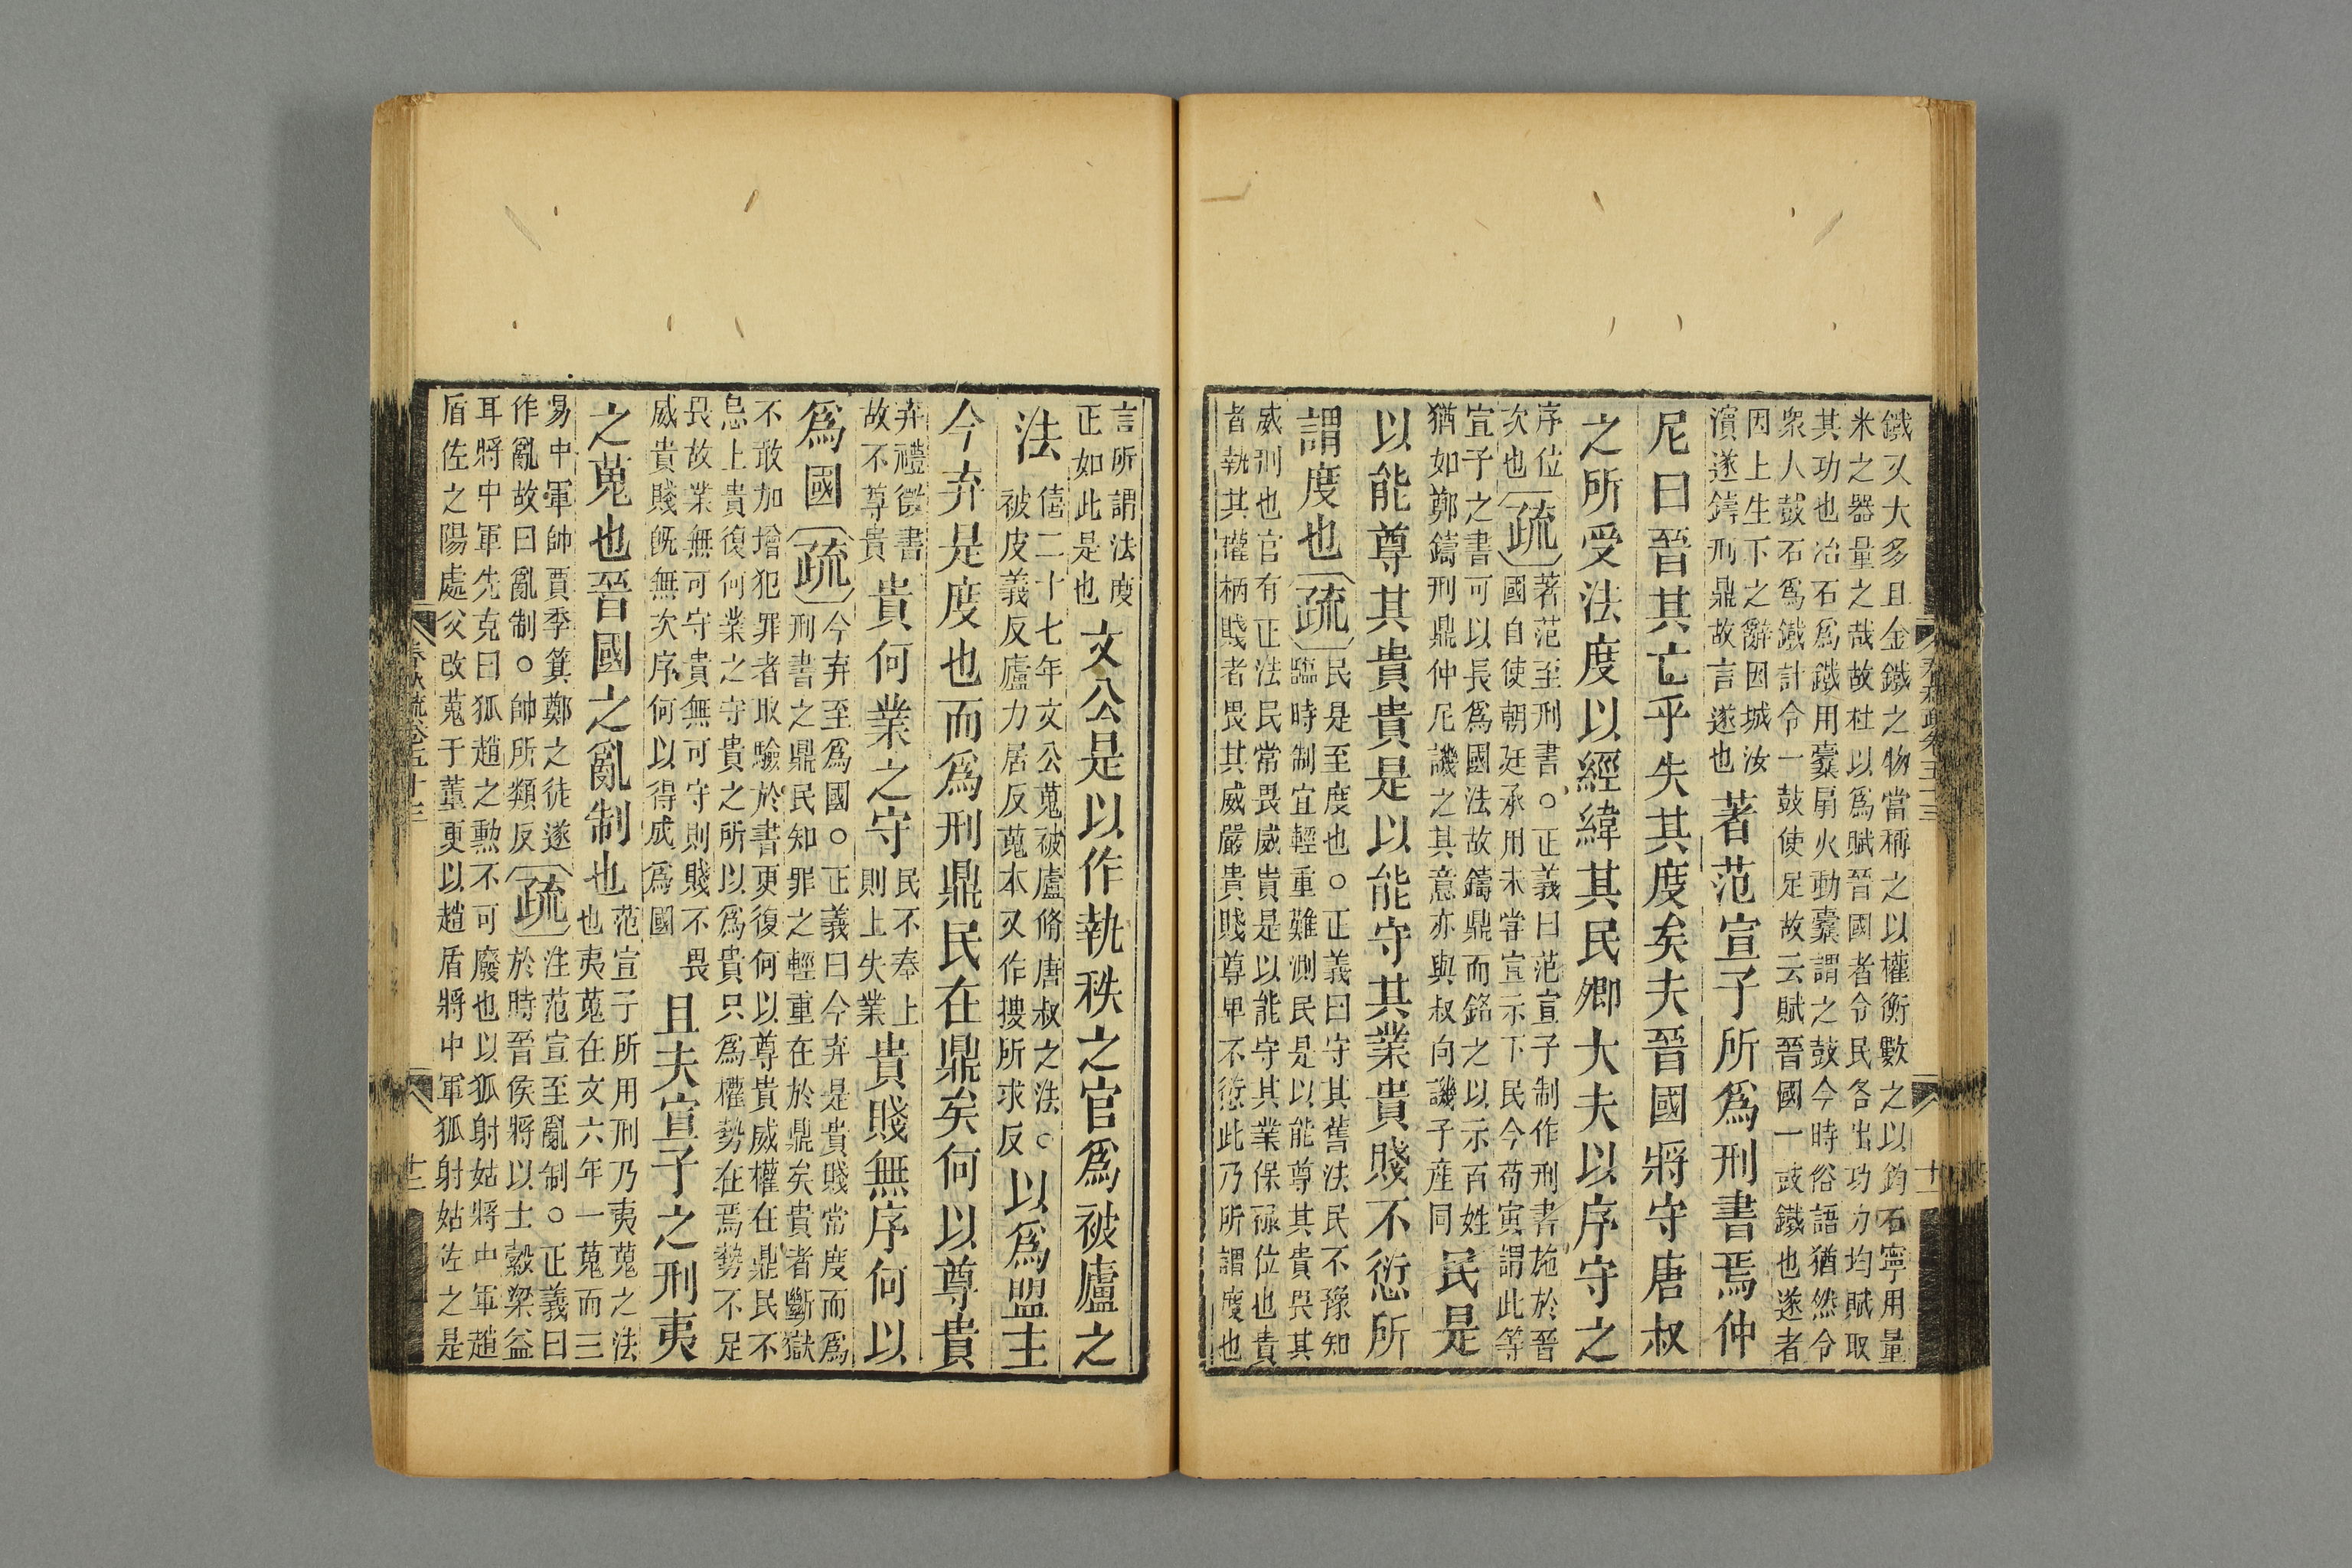 鐵又大多且金鐵之物當稱之以權衡數之以鈞石寧用量
米之器量之哉故杜以爲賦晉國者令民各出功力均賦取
其功也冶石爲鐵用橐扇火動橐謂之鼓今時俗語猶然令
衆人鼓石爲鐵計令一鼓使足故云賦晉國一鼓鐵也遂者
因上生下之辭因城汝
濵遂鑄刑鼎故言遂也
著范宣子所爲刑書焉仲
尼曰晉其亡乎失其度矣夫晉國將守唐叔
之所受法度以經緯其民卿大夫以序守之
序位
次也
疏
著范至刑書○正義曰范宣子制作刑書施於晉
國自使朝廷承用未嘗宣示下民今荀寅謂此等
宣子之書可以長爲國法故鑄鼎而銘之以示百姓
猶如鄭鑄刑鼎仲尼譏之其意亦與叔向譏子産同
民是
以能尊其貴貴是以能守其業貴賤不愆所
謂度也
疏
民是至度也○正義曰守其舊法民不豫知
臨時制宜輕重難測民是以能尊其貴畏其
威刑也官有正法民常畏威貴是以能守其業保祿位也貴
者執其權柄賤者畏其威嚴貴賤尊卑不愆此乃所謂度也
言所謂法度
正如此是也
文公是以作執秩之官爲被廬之
法
僖二十七年文公蒐被廬脩唐叔之法○
被皮義反廬力居反蒐本又作搜所求反
以爲盟主
今弃是度也而爲刑鼎民在鼎矣何以尊貴
弃禮徵書
故不尊貴
貴何業之守
民不奉上
則上失業
貴賤無序何以
爲國
疏
今弃至爲國○正義曰今弃是貴賤常度而爲
刑書之鼎民知罪之輕重在於鼎矣貴者斷獄
不敢加增犯罪者取驗於書更復何以尊貴威權在鼎民不
忌上貴復何業之守貴之所以爲貴只爲權勢在焉勢不足
畏故業無可守貴無可守則賤不畏
威貴賤旣無次序何以得成爲國
且夫宣子之刑夷
之蒐也晉國之亂制也
范宣子所用刑乃夷蒐之法
也夷蒐在文六年一蒐而三
易中軍帥賈季箕鄭之徒遂
作亂故曰亂制○帥所類反
疏
注范宣至亂制○正義曰
於時晉侯將以士縠梁益
耳將中軍先克曰狐趙之勲不可廢也以狐射姑將中軍趙
盾佐之陽處父改蒐于董更以趙盾將中軍狐射姑佐之是
春秋疏卷五十三
十二
春秋疏卷五十三
十一